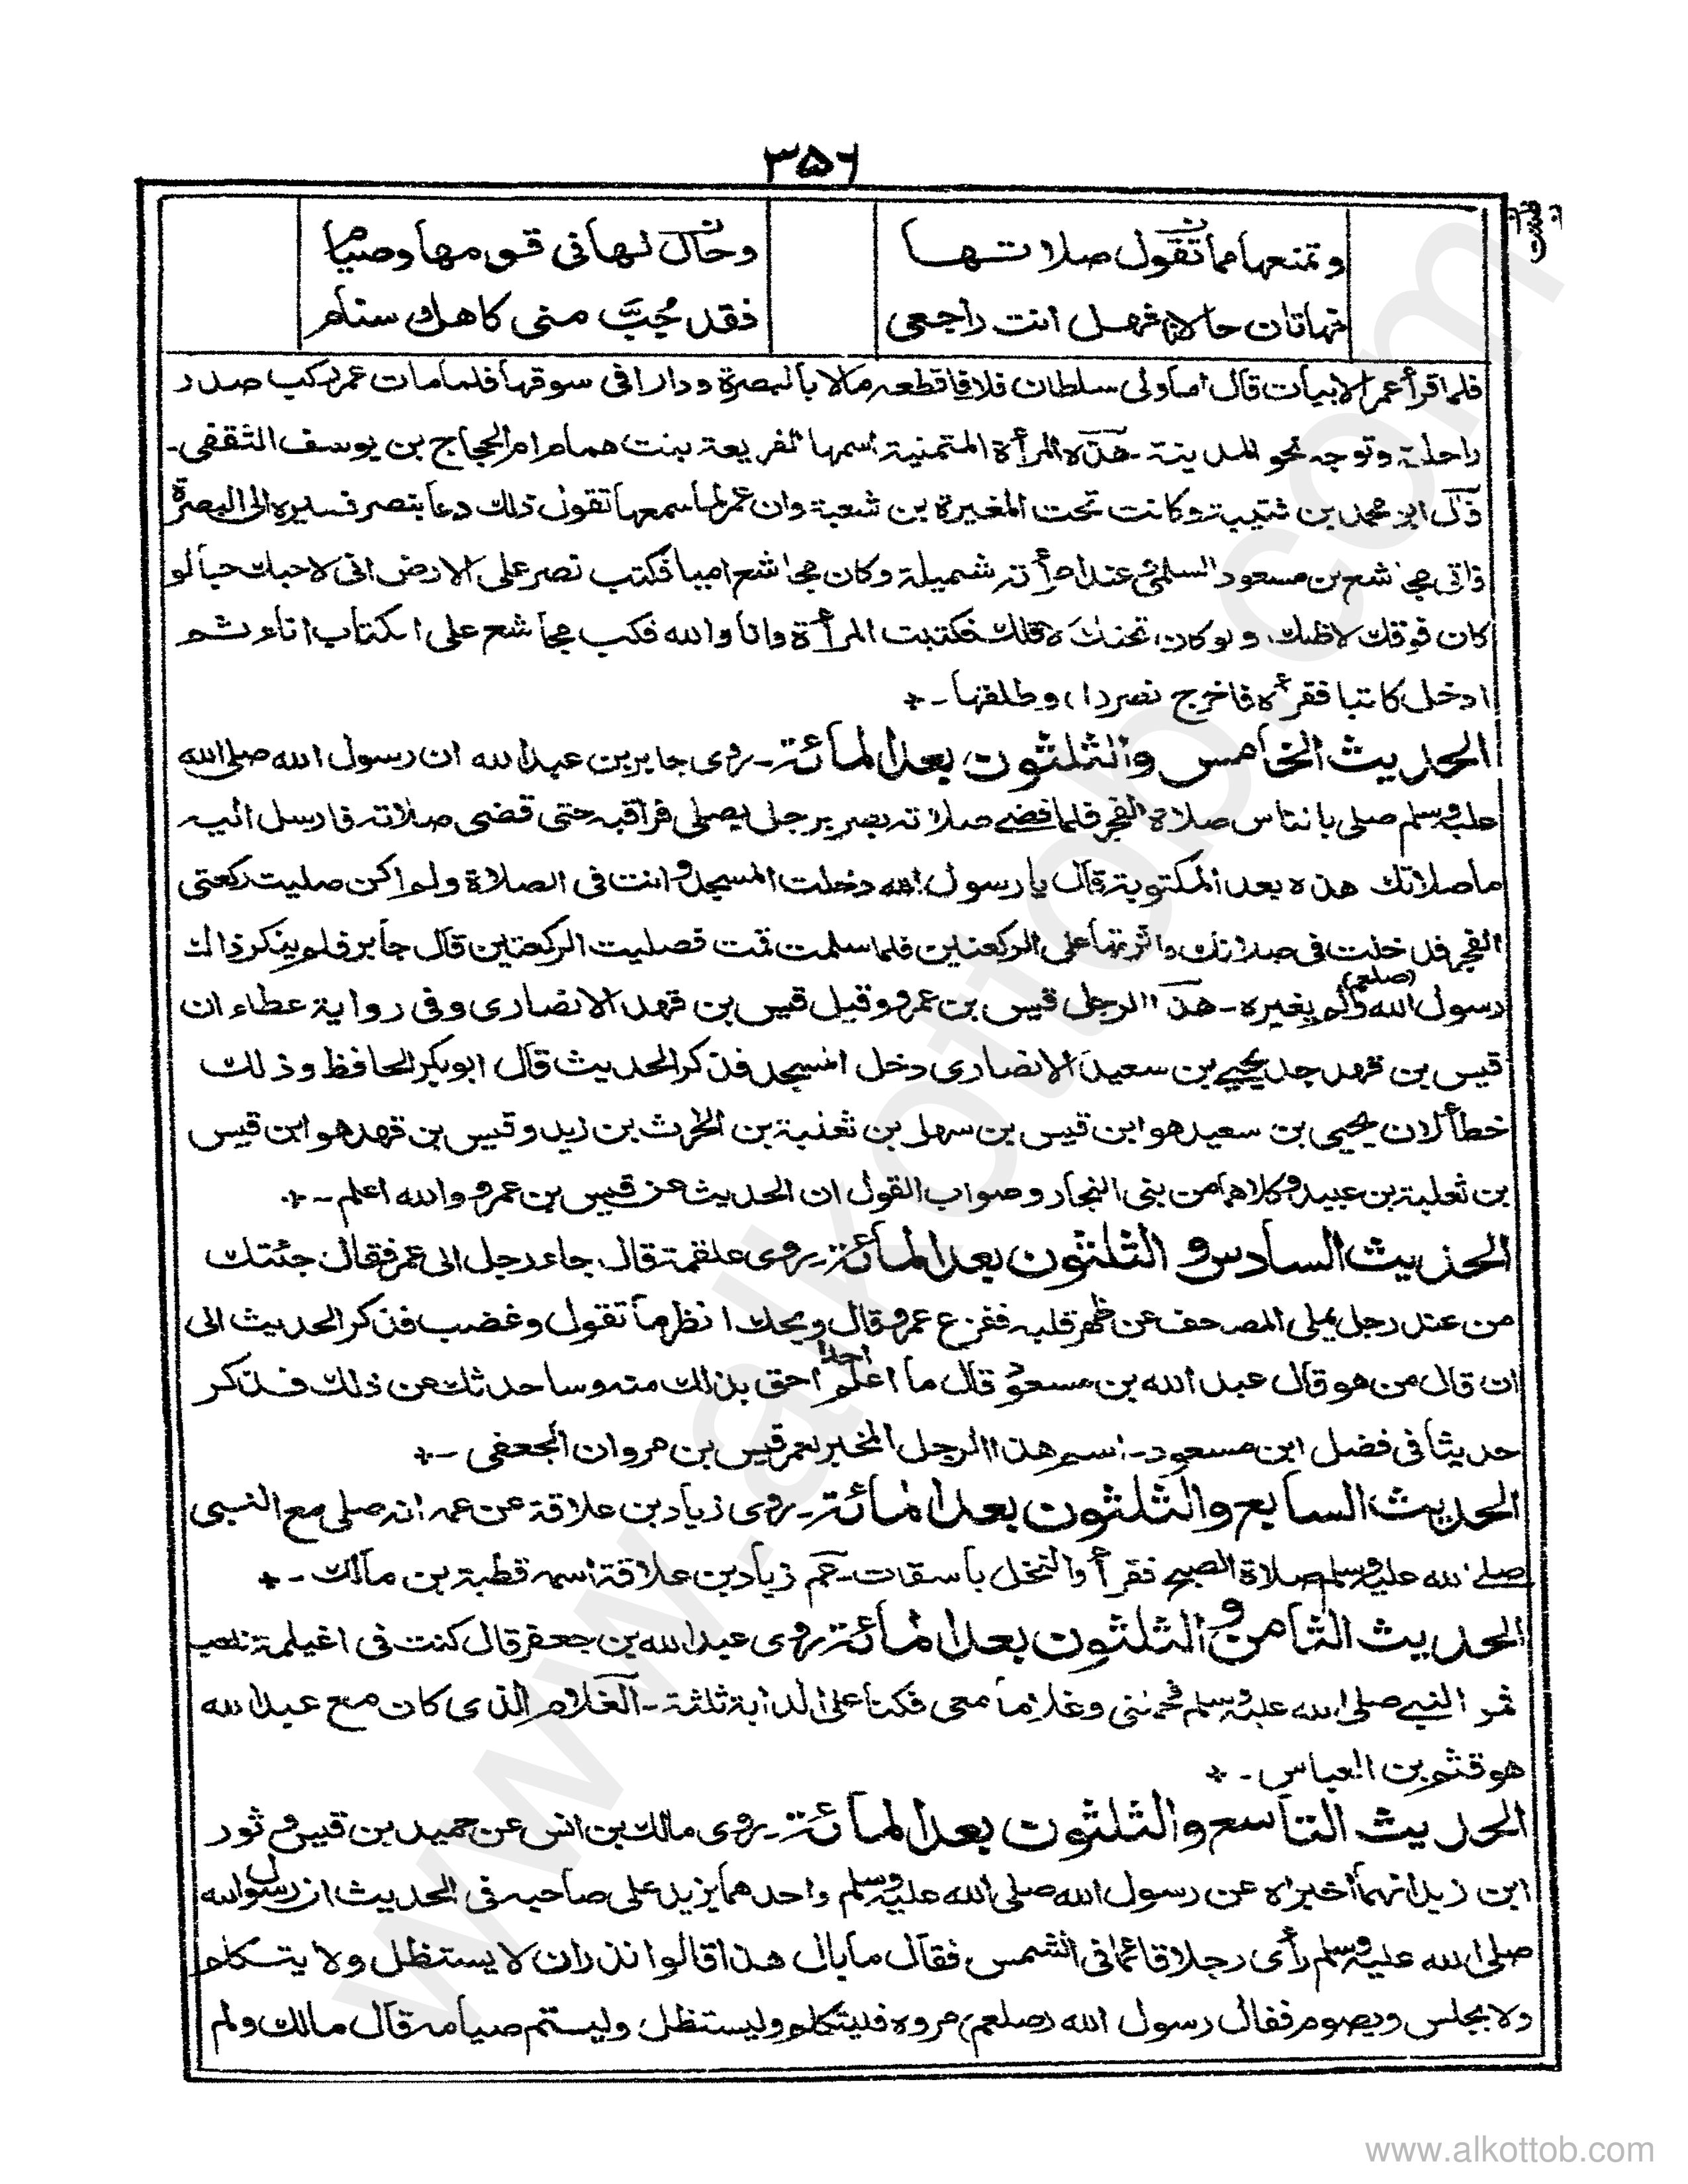 ٣٥٦
وتمنعها مما تقول صلاتها وحال لها فى قومها وصيام
فهاتان حالانا فهل انت راجعى فقد جُبَّ منى كاهل وسنام
فلما قرأ عمر الابيات قال اما ولى سلطان فلا فاقطعه مالا بالبصرة ودارا فى سوقها فلما مات عمر ركب صدر
راحلته وتوجه نحو المدينة - هذه المرأة المتمنية اسمها الفريعة بنت همام ام الحجاج بن يوسف الثقفى -
بن شعبة وان عمر لما سمعها تقول ذلك دعا بنصر فسيره الى البصرة وكانت تحت المغيرة
فاتى مجاشع بن مسعود السلمى عند امرأته شميلة وكان مجاشع اميا فكتب نصر على الارض انى لاحبك حبا لو
كان فوقك لاظلك ولو كان تحتك لاقلك فكتبت المرأة وانا والله فكب مجاشع على الكتاب اناء ثم
ادخل كاتبا فقرأه فاخرج نصرا وطلقها -
الحديث الخامس والثلثون بعد المائة - روى جابر بن عبد الله ان رسول الله صلى الله
عليه وسلم صلى بالناس صلاة الفجر فلما قضى صلاته بصر برجل يصلى فراقبه حتى قضى صلاته فارسل اليه
ما صلاتك هذه بعد المكتوبة قال يا رسول الله دخلت المسجد وانت فى الصلاة ولم اكن صليت ركعتى
الفجر فدخلت فى صلاتك واثرتها على الركعتين فلما سلمت قمت فصليت الركعتين قال جابر فلم ينكر ذالك
رسول الله (صلعم) ولم يغيره - هذا الرجل قيس بن عمرو وقيل قيس بن قهد الانصارى وفى رواية عطاء ان
قيس بن قهد جد يحيى بن سعيد الانصارى دخل المسجد فذكر الحديث قال ابو بكر الحافظ وذلك
خطأ لان يحيى بن سعيد هو ابن قيس بن سهل بن ثعلبة بن الحرث بن زيد وقيس بن قهد هو ابن قيس
بن ثعلبة بن عبيد وكلاهما من بنى النجار وصواب القول ان الحديث عن قيس بن عمرو والله اعلم -
الحديث السادس والثلثون بعد المائة - روى علقمة قال جاء رجل الى عمر فقال جئتك
من عند رجل يملى المصحف عن ظهر قلبه ففزع عمر وقال ويحك انظر ما تقول وغضب فذكر الحديث الى
ان قال من هو قال عبد الله بن مسعود قال ما اعلم احدا احق بذلك منه وساحدثك عن ذلك فذكر
حديثا فى فضل ابن مسعود - اسم هذا الرجل المخبر لعمر قيس بن مروان الجعفى -
الحديث السابع والثلثون بعد المائة - روى زياد بن علاقة عن عمه انه صلى مع النبى
صلى الله عليه وسلم صلاة الصبح فقرأ والنخل باسقات - عم زياد بن علاقة اسمه قطبة بن مالك -
الحديث الثامن والثلثون بعد المائة روى عبد الله بن جعفر قال كنت فى اغيلمة نلعب
فمر النبى صلى الله عليه وسلم فحملنى وغلاما معى فكنا على الدابة ثلثة - الغلام الذى كان مع عبد الله
هو قثم بن العباس -
الحديث التاسع والثلثون بعد المائة - روى مالك بن انس عن حميد بن قيس و ثور
ابن زيد انهما اخبراه عن رسول الله صلى الله عليه وسلم واحدهما يزيد على صاحبه فى الحديث ان رسول الله
صلى الله عليه وسلم رأى رجلا قائما فى الشمس فقال ما بال هذا قالوا نذر ان لا يستظل ولا يتكلم
ولا يجلس ويصوم فقال رسول الله (صلعم) مروه فليتكلم وليستظل وليتم صيامه قال مالك ولم
www.alkottob.com